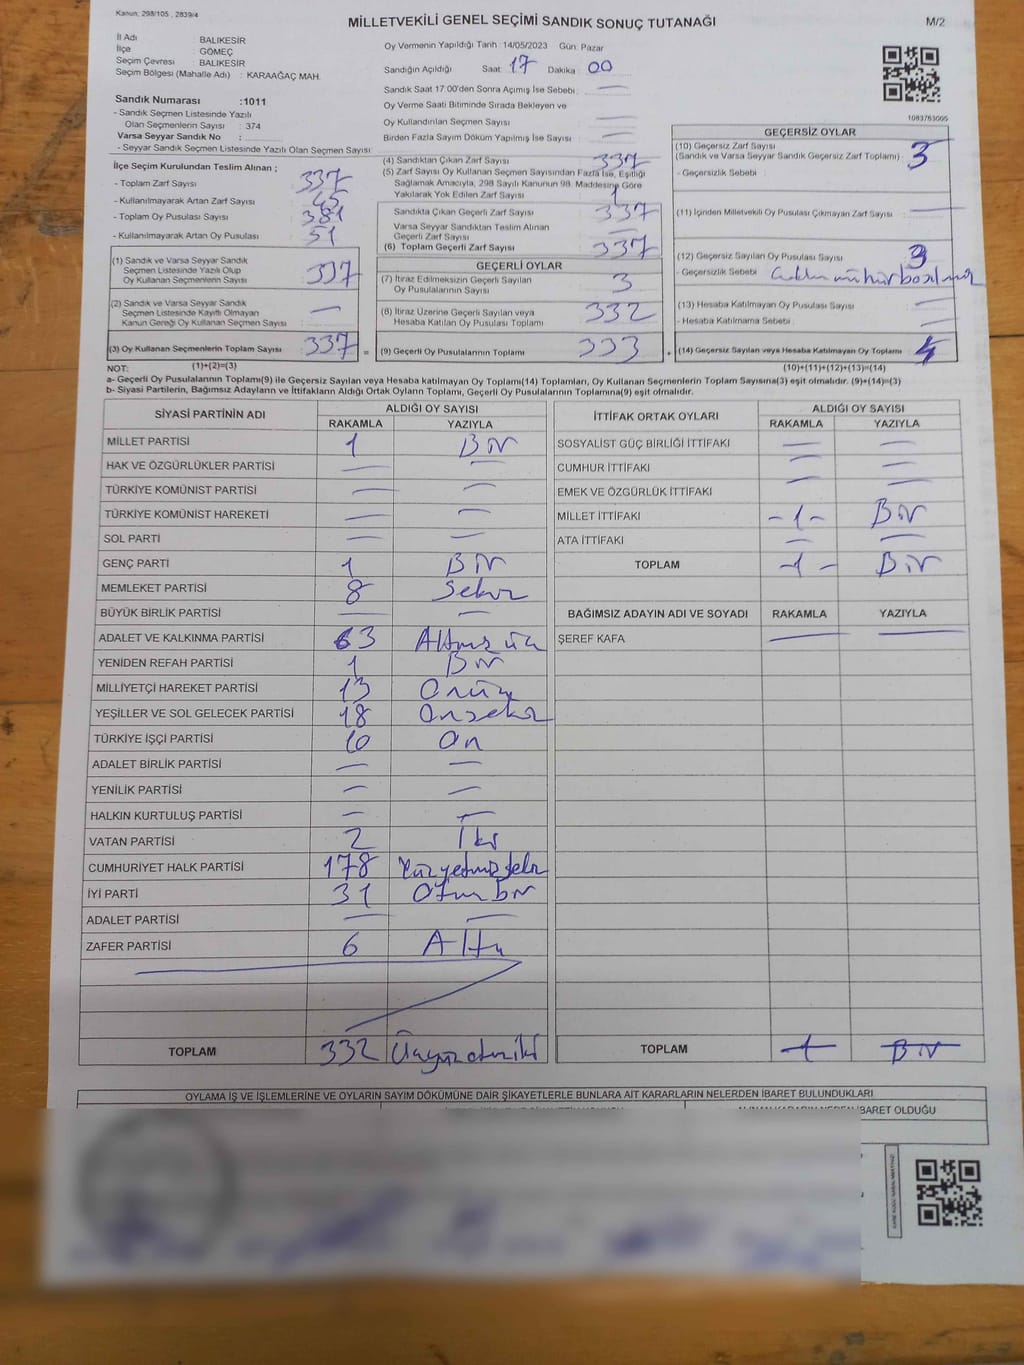 Kanun; 298/105 , 2839/4
MİLLETVEKİLİ GENEL SEÇİMİ SANDIK SONUÇ TUTANAĞI
M/2
İl Adı : BALIKESİR
İlçe : GÖMEÇ
Seçim Çevresi : BALIKESİR
Seçim Bölgesi (Mahalle Adı) : KARAAĞAÇ MAH.
Sandık Numarası :1011
- Sandık Seçmen Listesinde Yazılı
Olan Seçmenlerin Sayısı : 374
Varsa Seyyar Sandık No :
- Seyyar Sandık Seçmen Listesinde Yazılı Olan Seçmen Sayısı:
Oy Vermenin Yapıldığı Tarih :14/05/2023 Gün: Pazar
Sandığın Açıldığı Saat: 17 Dakika : 00
Sandık Saat 17:00'den Sonra Açılmış İse Sebebi : —
Oy Verme Saati Bitiminde Sırada Bekleyen ve
Oy Kullandırılan Seçmen Sayısı : —
Birden Fazla Sayım Döküm Yapılmış İse Sayısı : —
1083763005
İlçe Seçim Kurulundan Teslim Alınan ;
- Toplam Zarf Sayısı : 337
- Kullanılmayarak Artan Zarf Sayısı : 45
- Toplam Oy Pusulası Sayısı : 381
- Kullanılmayarak Artan Oy Pusulası : 51
(1) Sandık ve Varsa Seyyar Sandık
Seçmen Listesinde Yazılı Olup
Oy Kullanan Seçmenlerin Sayısı : 337
(2) Sandık ve Varsa Seyyar Sandık
Seçmen Listesinde Kayıtlı Olmayan
Kanun Gereği Oy Kullanan Seçmen Sayısı : —
(3) Oy Kullanan Seçmenlerin Toplam Sayısı : 337
(1)+(2)=(3)
(4) Sandıktan Çıkan Zarf Sayısı : 337
(5) Zarf Sayısı Oy Kullanan Seçmen Sayısından Fazla İse, Eşitliği
Sağlamak Amacıyla, 298 Sayılı Kanunun 98. Maddesine Göre
Yakılarak Yok Edilen Zarf Sayısı :
Sandıkta Çıkan Geçerli Zarf Sayısı : 337
Varsa Seyyar Sandıktan Teslim Alınan
Geçerli Zarf Sayısı : —
(6) Toplam Geçerli Zarf Sayısı : 337
GEÇERLİ OYLAR
(7) İtiraz Edilmeksizin Geçerli Sayılan
Oy Pusulalarının Sayısı : 3
(8) İtiraz Üzerine Geçerli Sayılan veya
Hesaba Katılan Oy Pusulası Toplamı : 332
(9) Geçerli Oy Pusulalarının Toplamı : 333
GEÇERSİZ OYLAR
(10) Geçersiz Zarf Sayısı
(Sandık ve Varsa Seyyar Sandık Geçersiz Zarf Toplamı) : 3
- Geçersizlik Sebebi :
(11) İçinden Milletvekili Oy Pusulası Çıkmayan Zarf Sayısı : —
(12) Geçersiz Sayılan Oy Pusulası Sayısı : 3
- Geçersizlik Sebebi :
(13) Hesaba Katılmayan Oy Pusulası Sayısı : —
- Hesaba Katılmama Sebebi : —
(14) Geçersiz Sayılan veya Hesaba Katılmayan Oy Toplamı : 4
(10)+(11)+(12)+(13)=(14)
NOT:
a- Geçerli Oy Pusulalarının Toplamı(9) ile Geçersiz Sayılan veya Hesaba katılmayan Oy Toplamı(14) Toplamları, Oy Kullanan Seçmenlerin Toplam Sayısına(3) eşit olmalıdır. (9)+(14)=(3)
b- Siyasi Partilerin, Bağımsız Adayların ve İttifakların Aldığı Ortak Oyların Toplamı, Geçerli Oy Pusulalarının Toplamına(9) eşit olmalıdır.
SİYASİ PARTİNİN ADI ALDIĞI OY SAYISI
RAKAMLA YAZIYLA
MİLLET PARTİSİ 1 Bir
HAK VE ÖZGÜRLÜKLER PARTİSİ — —
TÜRKİYE KOMÜNİST PARTİSİ — —
TÜRKİYE KOMÜNİST HAREKETİ — —
SOL PARTİ — —
GENÇ PARTİ 1 Bir
MEMLEKET PARTİSİ 8 Sekiz
BÜYÜK BİRLİK PARTİSİ — —
ADALET VE KALKINMA PARTİSİ 63 Altmış üç
YENİDEN REFAH PARTİSİ 1 Bir
MİLLİYETÇİ HAREKET PARTİSİ 13 Onüç
YEŞİLLER VE SOL GELECEK PARTİSİ 18 Onsekiz
TÜRKİYE İŞÇİ PARTİSİ 10 On
ADALET BİRLİK PARTİSİ — —
YENİLİK PARTİSİ — —
HALKIN KURTULUŞ PARTİSİ — —
VATAN PARTİSİ 2 İki
CUMHURİYET HALK PARTİSİ 178 Yüzyetmişsekiz
İYİ PARTİ 31 Otuzbir
ADALET PARTİSİ — —
ZAFER PARTİSİ 6 Altı
TOPLAM 332 Üçyüzotuziki
İTTİFAK ORTAK OYLARI ALDIĞI OY SAYISI
RAKAMLA YAZIYLA
SOSYALİST GÜÇ BİRLİĞİ İTTİFAKI — —
CUMHUR İTTİFAKI — —
EMEK VE ÖZGÜRLÜK İTTİFAKI — —
MİLLET İTTİFAKI -1- Bir
ATA İTTİFAKI — —
TOPLAM -1- Bir
BAĞIMSIZ ADAYIN ADI VE SOYADI RAKAMLA YAZIYLA
ŞEREF KAFA — —
TOPLAM 1 Bir
OYLAMA İŞ VE İŞLEMLERİNE VE OYLARIN SAYIM DÖKÜMÜNE DAİR ŞİKAYETLERLE BUNLARA AİT KARARLARIN NELERDEN İBARET BULUNDUKLARI
İBARET OLDUĞU